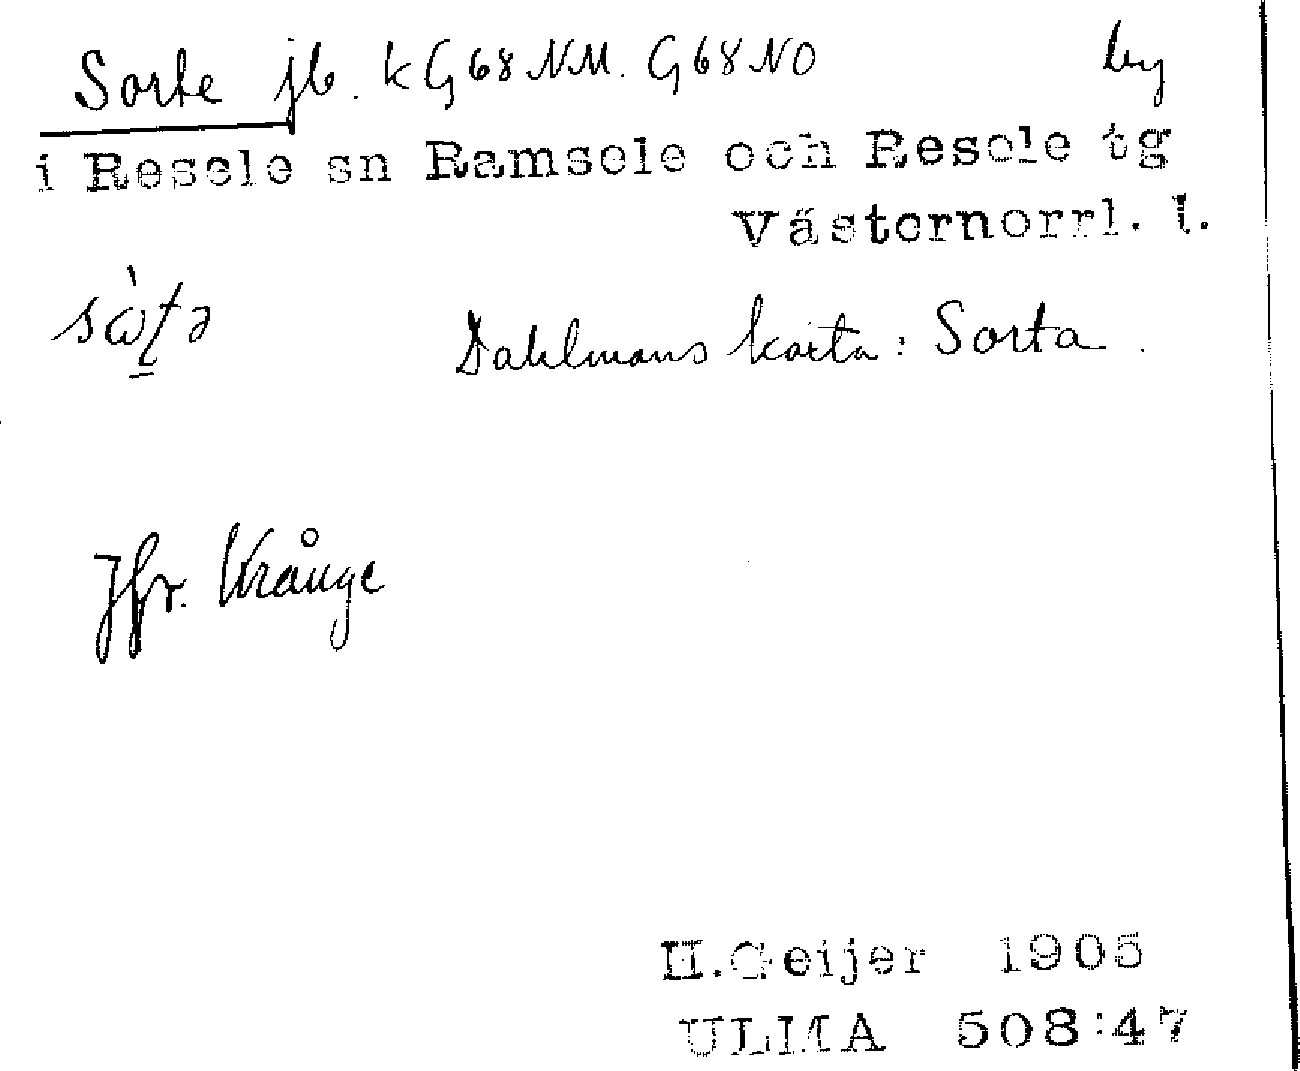 Sorte jb. k G68NM. G68NO by
i Resele sn Ramsele och Resele tg
Västernorrl. l.
Dahlmans karta: Sorta.
Jfr. Krånge
H.Geijer 1905
ULMA 508:47